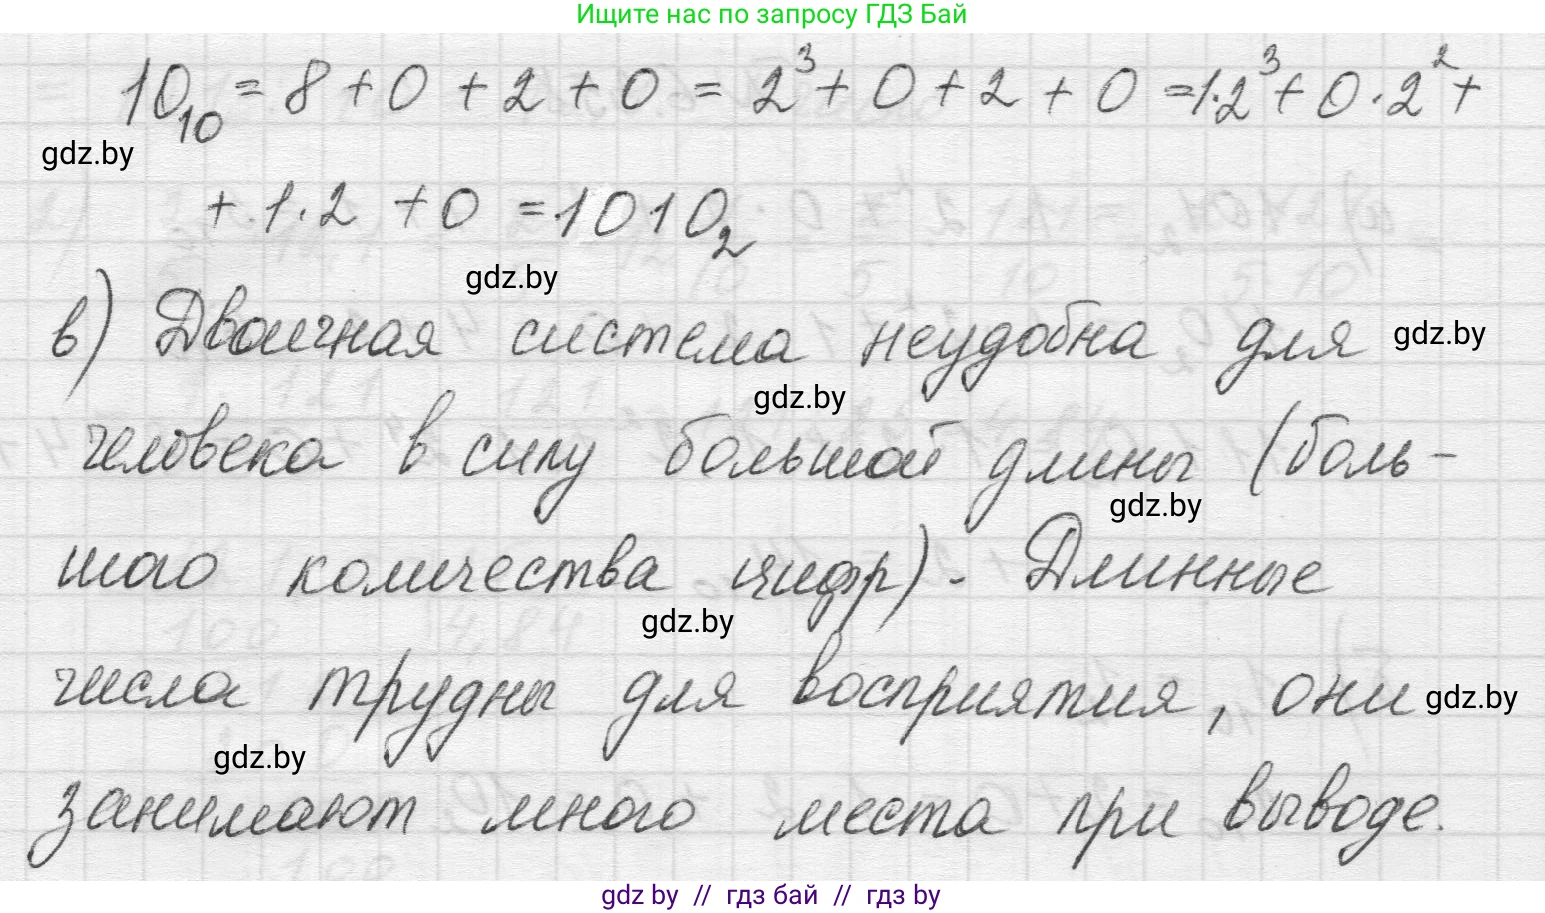 Ищите нас по запросу ГДЗ Бай
10₁₀ = 8 + 0 + 2 + 0 = 2³ + 0 + 2 + 0 = 1·2³ + 0·2² +
gdz.by
+ 1·2 + 0 = 1010₂
gdz.by
в) Двоичная система неудобна для gdz.by
gdz.by
человека в силу большой длины (боль-
gdz.by
шого количества цифр). Длинные
gdz.by
числа трудны для восприятия, они gdz.by
gdz.by
занимают много места при выводе.
gdz by // гдз бай // гдз by